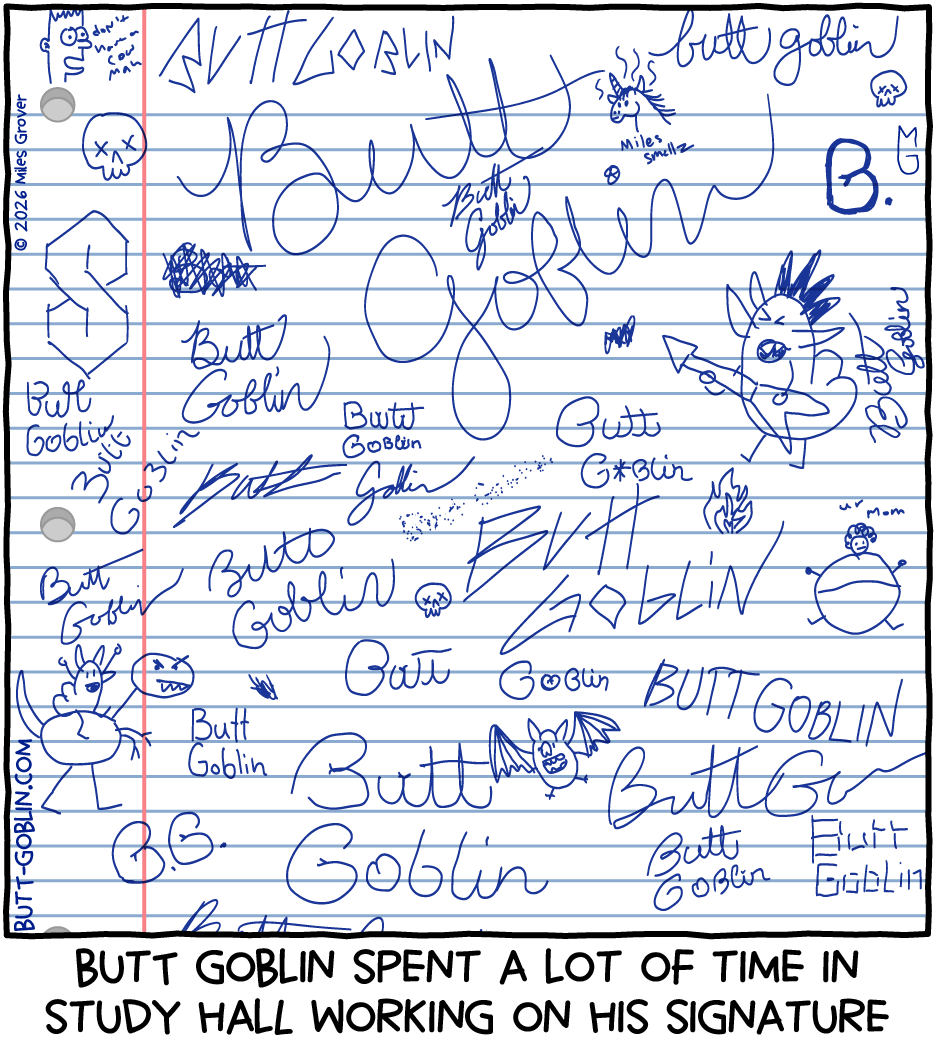 don't
have a
cow
man
BUTT GOBLIN
butt goblin
© 2026 Miles Grover
Miles
smellz
MG
B.
Butt
Goblin
Butt
Goblin
Butt
Goblin
Butt
Goblin
Butt
Goblin
Butt
Goblin
Butt
Goblin
Butt
G*blin
Butt
Goblin
Butt
Goblin
ur mom
BUTT
GOBLIN
Butt
Goblin
Butt
Goblin
Butt
Goblin
BUTT GOBLIN
Butt
Goblin
Butt
Goblin
Butt Go
B.G.
Butt
Goblin
Butt
Goblin
Butt
BUTT-GOBLIN.COM
BUTT GOBLIN SPENT A LOT OF TIME IN
STUDY HALL WORKING ON HIS SIGNATURE